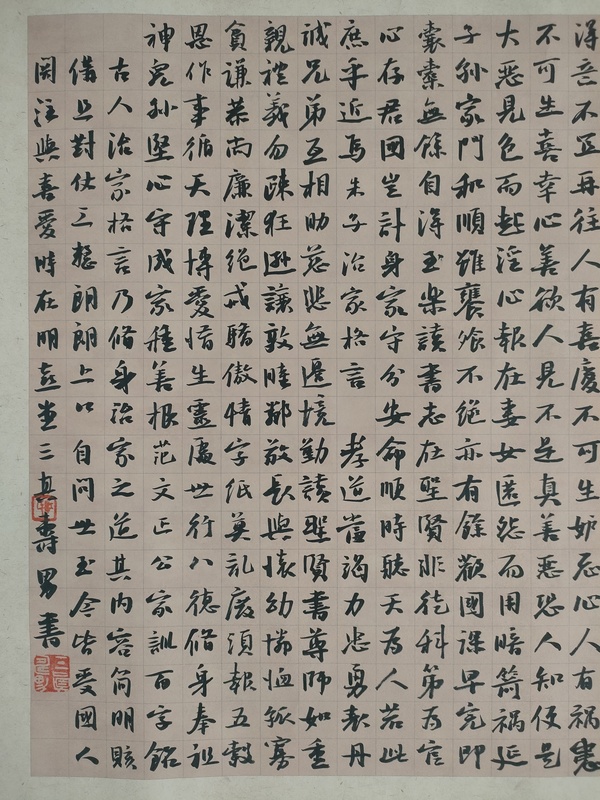 淂意不宜再往人有喜慶不可生妒忌心人有禍患
不可生喜幸心善欲人見不是真善惡恐人知便是
大惡見色而起淫心報在妻女匿怨而用暗箭禍延
子孫家門和順雖饔飧不絕亦有餘歡國課早完即
囊橐無餘自淂至樂讀書志在聖賢非徒科第為官
心存君國豈計身家守分安命順時聽天為人若此
庶乎近焉朱子治家格言 孝道當竭力忠勇表丹
誠兄弟互相助慈悲無邊境勤讀聖賢書尊師如重
親禮義勿疎狂遜讓敦睦鄰敬長與懷幼憐恤孤寡
貪謙恭尚廉潔絕戒驕傲情字紙莫亂廢須報五穀
恩作事循天理博愛惜生靈處世行八德修身奉祖
神兒孫堅心守成家種善根范文正公家訓百字銘
古人治家格言乃修身治家之道其內容簡明賅
備且對仗工整朗朗上口自問世至今皆受國人
關注與喜愛時在明 三真壽男書